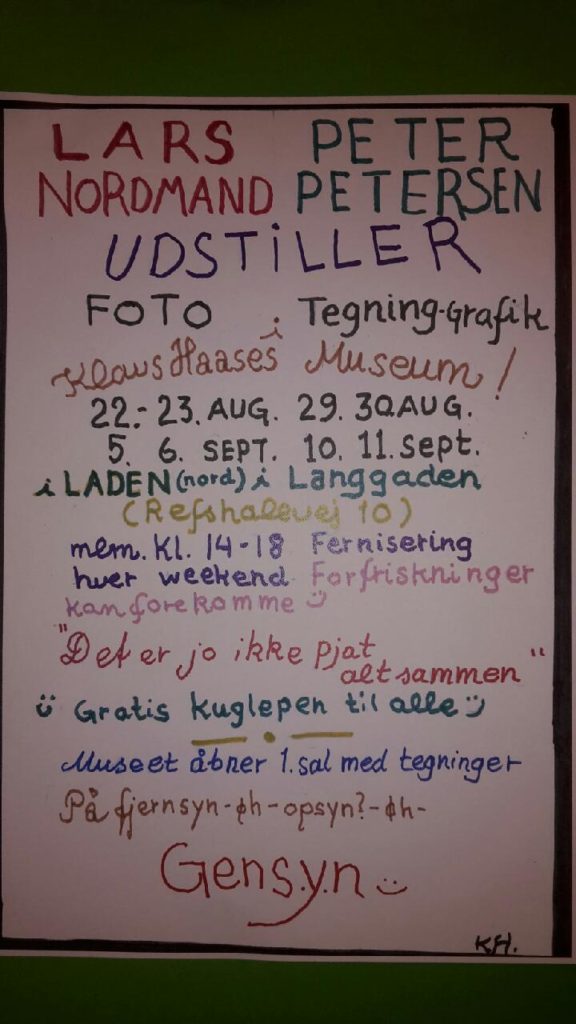 LARS PETER
NORDMAND PETERSEN
UDSTiLLER
FOTO i Tegning-Grafik
Klaus Haases Museum!
22.- 23. AUG. 29. 30 AUG.
5. 6. SEPT. 10. 11. sept.
i LADEN (nord) i Langgaden
(Refshalevej 10)
mlm. Kl. 14-18 Fernisering
hver weekend Forfriskninger
kan forekomme
"Det er jo ikke pjat
altsammen"
Gratis kuglepen til alle
Museet åbner 1. sal med tegninger
På fjernsyn-øh-opsyn?-øh-
Gens.y.n
KH.